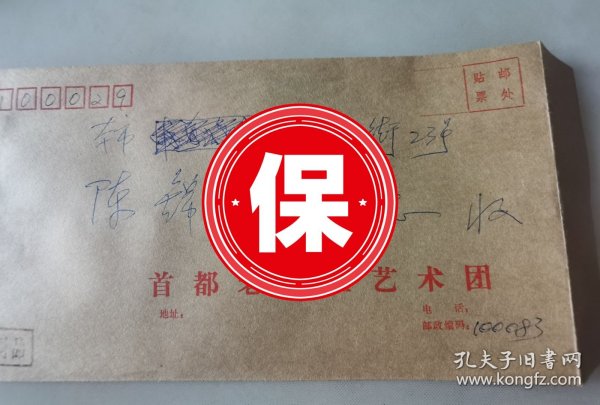 100029
贴邮
票处
本市 街23号
陈锦 心收
保
首都老 艺术团
地址:
电 话:
邮政编码:100083
孔夫子旧书网
www.kongfz.com